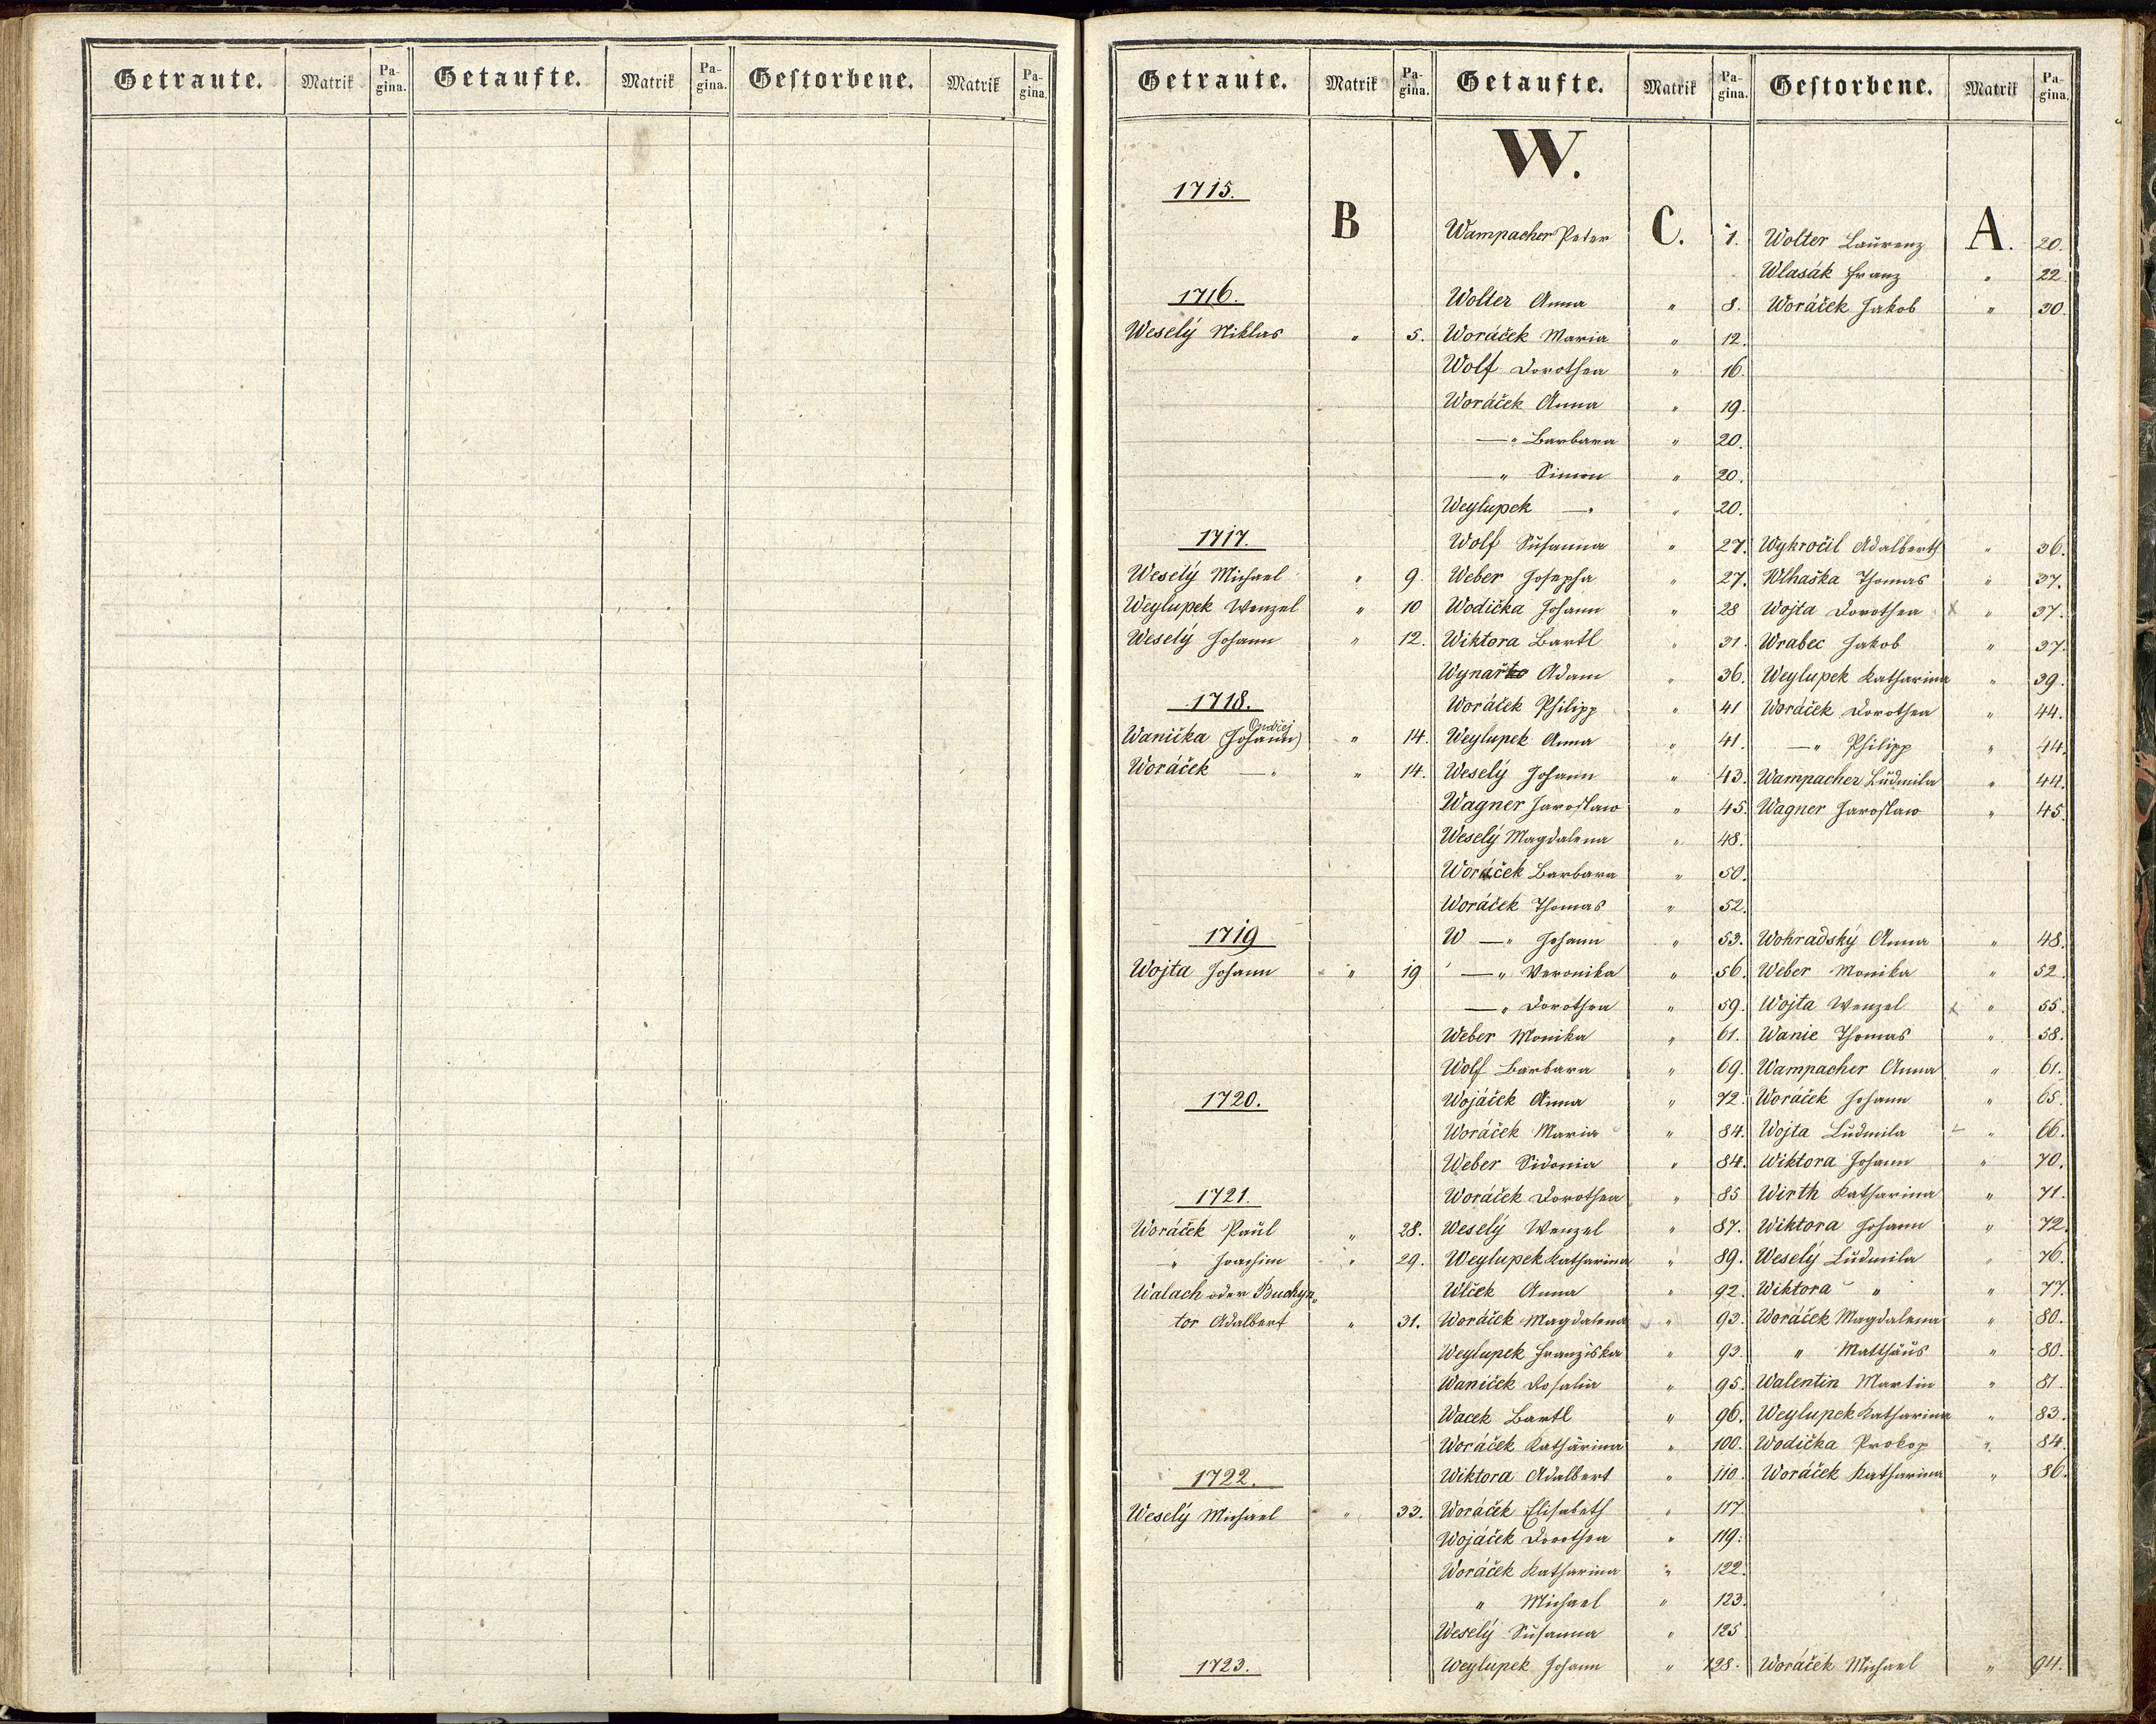 Getraute. Matrik Pagina. Getaufte. Matrik Pagina. Gestorbene. Matrik Pagina.
Getraute. Matrik Pagina. Getaufte. Matrik Pagina. Gestorbene. Matrik Pagina.
W.
1715.
B Wampacher Peter C. 1. Wolter Laurenz A. 20.
Wlasák Franz " 22
1716. Wolter Anna " 8. Woráček Jakob " 30.
Weselý Niklas " 5. Woráček Maria " 12.
Wolf Dorothea " 16.
Woráček Anna " 19.
—" Barbara " 20.
—" Simon " 20.
Weylupek —" " 20.
1717. Wolf Susanna " 27. Wykročil Adalberth " 36.
Weselý Michael " 9. Weber Josepha " 27. Wlhaška Thomas " 37.
Weylupek Wenzel " 10 Wodička Johann " 28 Wojta Dorothea x " 37.
Weselý Johann " 12. Wiktora Bartl " 31. Wrabec Jakob " 37.
Wynař Adam " 36. Weylupek Katharina " 39.
1718. Woráček Philipp " 41 Woráček Dorothea " 44.
Ondřej
Wanička (Johann) " 14. Weylupek Anna " 41. —" Philipp " 44.
Woráček —" " 14. Weselý Johann " 43. Wampacher Ludmila " 44.
Wagner Jaroslaw " 45. Wagner Jaroslaw " 45.
Weselý Magdalena " 48.
Woráček Barbara " 50.
Woráček Thomas " 52.
1719 W —" Johann " 53. Wohradský Anna " 48.
Wojta Johann " 19 —" Veronika " 56. Weber Monika " 52.
—" Dorothea " 59. Wojta Wenzel x " 55.
Weber Monika " 61. Wanie Thomas " 58.
Wolf Barbara " 69. Wampacher Anna " 61.
1720. Wojáček Anna " 72. Woráček Johann " 65.
Woráček Maria " 84. Wojta Ludmila " 66.
Weber Sidonia " 84. Wiktora Johann " 70.
1721. Woráček Dorothea " 85 Wirth Katharina " 71.
Woráček Paul " 28. Weselý Wenzel " 87. Wiktora Johann " 72.
" Joachim " 29. Weylupek Katharina " 89. Weselý Ludmila " 76.
Walach oder Buchyn„ Wlček Anna " 92. Wiktora " " 77.
tor Adalbert " 31. Woráček Magdalena " 93. Woráček Magdalena " 80.
Weylupek Franziska " 93. " Matthäus " 80.
Waniček Rosalia " 95. Walentin Martin " 81.
Wacek Bartl " 96. Weylupek Katharina " 83.
Woráček Katharina " 100. Wodička Prokop " 84.
1722. Wiktora Adalbert " 110. Woráček Katharina " 86.
Weselý Michael " 33. Woráček Elisabeth " 117.
Wojáček Dorothea " 119.
Woráček Katharina " 122.
" Michael " 123.
Weselý Susanna " 125
1723. Weylupek Johann " 128. Woráček Michael " 94.